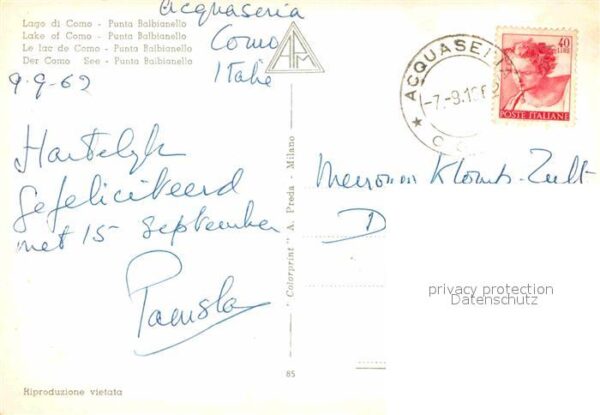 Lago di Como - Punta Balbianello
Lake of Como - Punta Balbianello
Le lac de Como - Punta Balbianello
Der Como See - Punta Balbianello
Acquaseria
Como
Italie
9.9.62
Hartelyk
gefeliciteerd
met 15 September
APM
ACQUASERIA
-7.-9.1962
40
LIRE
POSTE ITALIANE
Mevrouw Klomb-Zult
D
privacy protection
Datenschutz
"Colorprint" A. Preda - Milano
85
Riproduzione vietata